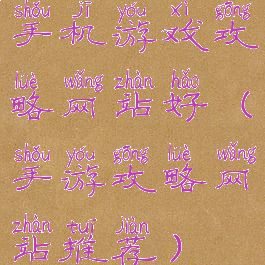 shǒu jī yóu xì gōng
手机游戏攻
lüè wǎng zhàn hǎo
略网站好（
shǒu yóu gōng lüè wǎng
手游攻略网
zhàn tuī jiàn
站推荐）